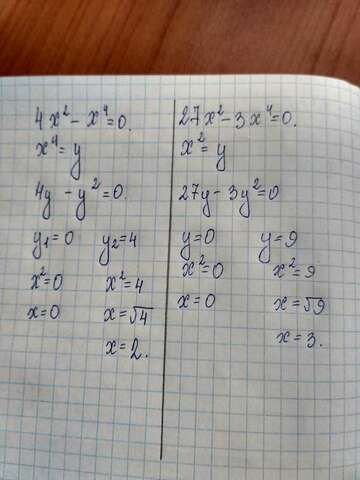 4x² - x⁴ = 0.
x⁴ = y
4y - y² = 0.
y₁ = 0 y₂ = 4
x² = 0 x² = 4
x = 0 x = √4
x = 2.
27x² - 3x⁴ = 0.
x² = y
27y - 3y² = 0
y = 0 y = 9
x² = 0 x² = 9
x = 0 x = √9
x = 3.